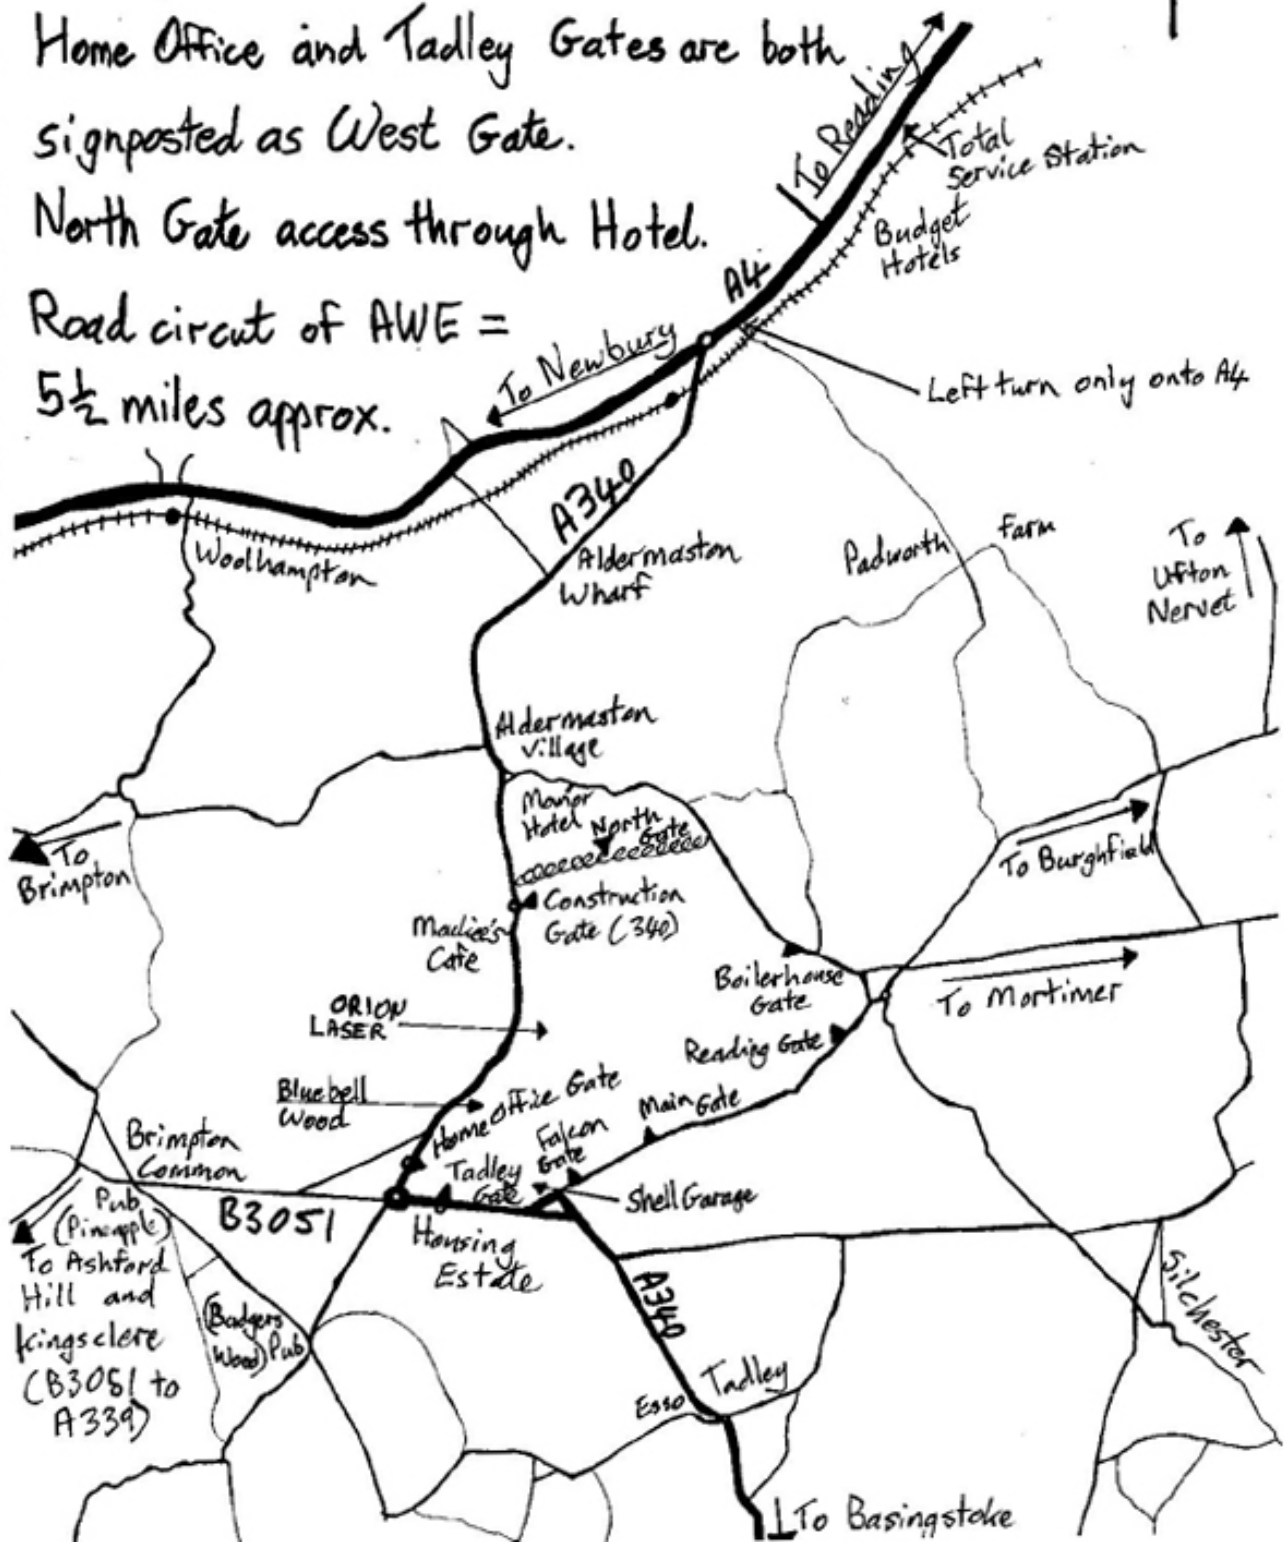 Home Office and Tadley Gates are both
signposted as West Gate.
North Gate access through Hotel.
Road circut of AWE =
5½ miles approx.
To Reading
Total
Service Station
Budget
Hotels
A4
To Newbury
Left turn only onto A4
A340
Aldermaston
Wharf
Woolhampton
Padworth
Farm
To
Ufton
Nervet
Aldermaston
Village
Manor
Hotel
North
Gate
To
Brimpton
To Burghfield
Construction
Gate (340)
Cafe
Boilerhouse
Gate
To Mortimer
ORION
LASER
Reading Gate
Bluebell
Wood
Home Office Gate
Main Gate
Falcon
Gate
Brimpton
Common
Tadley
Gate
Shell Garage
Pub
(Pineapple)
B3051
Housing
Estate
To Ashford
Hill and
Kingsclere
(B3051 to
A339)
(Badgers
Wood) Pub
A340
Silchester
Esso
Tadley
To Basingstoke